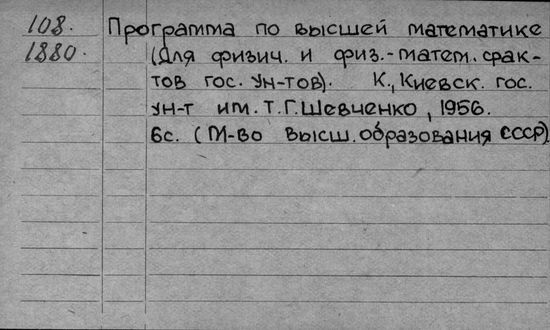 108. Программа по высшей математике
1880. (Для физич. и физ.-матем. фак-
тов гос. ун-тов). К., Киевск. гос.
ун-т им. Т.Г. Шевченко, 1956.
6с. (М-во высш. образования СССР)